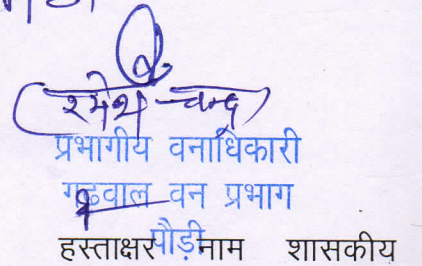 (रमेश चन्द्र)
प्रभागीय वनाधिकारी
गढ़वाल वन प्रभाग
पौड़ी
हस्ताक्षर नाम शासकीय